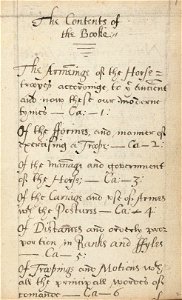 The Contents of
the Booke
The Armeings of the Horse
troopes accordinge to ye antient
and now these our moderne
tymes — Ca — : 1 :
Of the fformes, and manner of
exercising a Troope — Ca — 2 :
Of the manage and government
of the Horse; — Ca : — 3 :
Of the Carriage and use of Armes
wth the Postures — Ca — 4 :
Of Distances and orderly pro
portion in Ranks and ffyles
— Ca — 5 :
Of Motions wth
all the principall wordes of
comand — Ca — 6